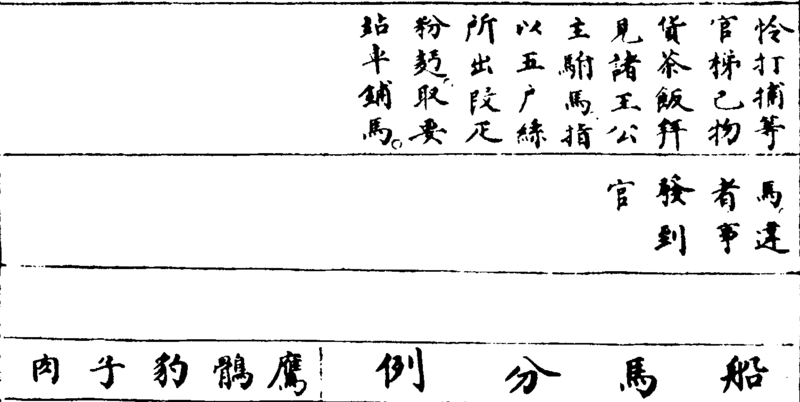 怜打捕等
官梯己物
貨茶飯拜
見諸王公
主駙馬指
以五户絲
所出段疋
粉麪取要
站車鋪馬
馬違
者事
發到
官
船馬分例
鷹鶻豹子肉